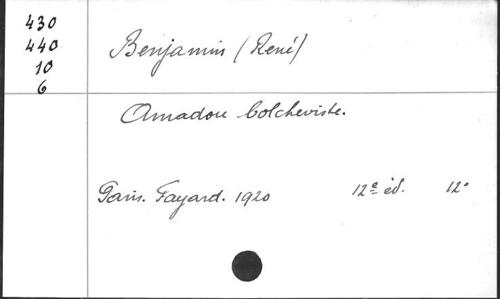 430
440
10
6
Benjamin (René)
Amadou bolcheviste.
Paris. Fayard. 1920 12e éd. 12°